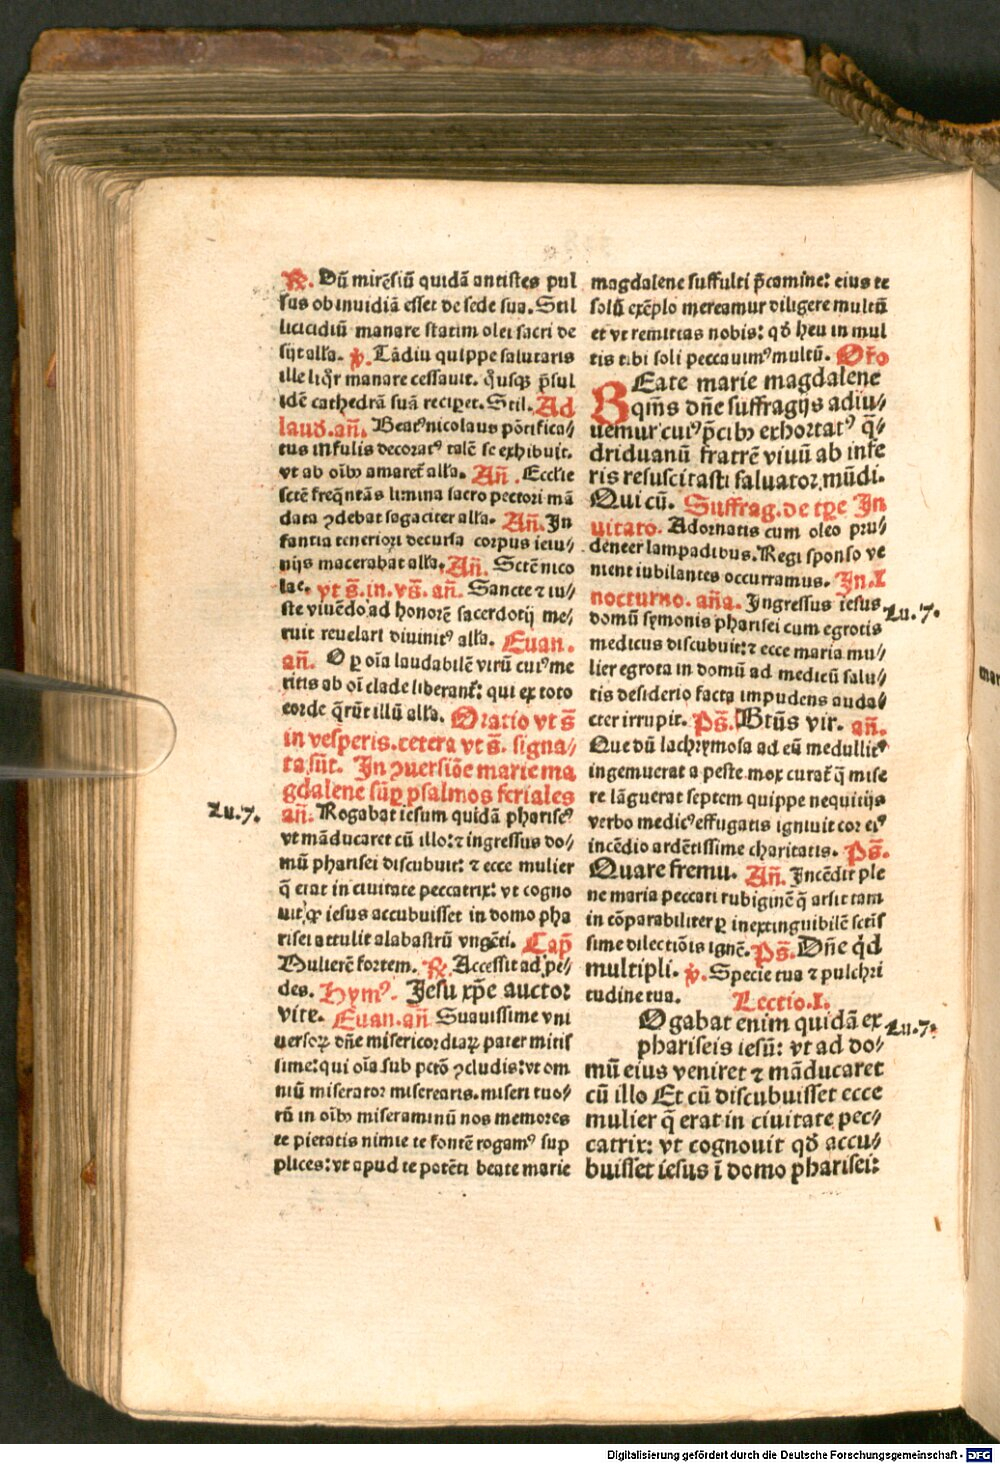 ℟. Dū mirēsiū quidā antistes pul
sus ob inuidiā esset de sede sua. Stil
licicidiū manare statim olei sacri de
sijt alľa. ℣. Tādiu quippe salutaris
ille liq̄r manare cessauit. q̄usqȝ p̄sul
idē cathedrā suā recip̲et. Stil. Ad
laud. añ. Beatꝰ nicolaus pōtifica⸗
tus infulis decoratꝰ talē se exhibuit.
vt ab oībꝫ amaret̄ alľa. Añ. Ecclie
scte freq̄ntās limina sacro pectori mā
data ꝯdebat sagaciter alľa. Añ. In
fantia teneriori decursa corpus ieiu⸗
nijs macerabat alľa. Añ. Scte nico
lae. vt s̄. in. vs̄. añ. Sancte ⁊ iu⸗
ste viuēdo ad honorē sacerdotij me⸗
ruit reuelari diuinitꝰ alľa. Euan.
añ. O ꝑ oīa laudabilē virū cuiꝰ me
ritis ab oī clade liberant̄: qui ex toto
corde q̄rūt illū alľa. Oratio vt s̄
in vesperis. cetera vt s̄. signa⸗
ta sūt. In ꝯuersiōe marie ma
gdalene sūp̲ psalmos feriales
Lu. 7.
añ. Rogabat iesum quidā phariseꝰ
vt māducaret cū illo: ⁊ ingressus do⸗
mū pharisei discubuit: ⁊ ecce mulier
q̄ erat in ciuitate peccatrix: vt cogno
uit ꝙ iesus accubuisset in domo pha
risei attulit alabastrū vngēti. Cap̄
Mulierē fortem. ℟. Accessit ad pe⸗
des. Hymꝰ. Jesu xp̄e auctor
vite. Euan. añ Suauissime vni
uersoꝝ dn̄e misericordiaꝝ pater mitis
sime: qui oīa sub pctō ꝯcludis: vt om
niū miserator miserearis. miseri tuo⸗
rū in oībꝫ miseraminū nos memores
te pietatis nimie te fontē rogamꝰ sup
plices: vt apud te potēti beate marie
magdalene suffulti p̄camine: eius te
solū exēplo mereamur diligere multū
et vt remittas nobis: qď heu in mul
tis tibi soli peccauimꝰ multū. Oro
BEate marie magdalene
qm̄s dn̄e suffragijs adiu⸗
uemur cuiꝰ p̄cibꝫ exhortatꝰ q̄⸗
driduanū fratrē viuū ab infe
ris resuscitasti saluator mūdi.
Qui cū. Suffrag. de tp̄e In
uitato. Adornatis cum oleo pru⸗
denter lampadibus. Regi sponso ve
nient iubilantes occurramus. In. I
nocturno. aña. Ingressus iesus Lu. 7.
domū symonis pharisei cum egrotis
medicus discubuit: ⁊ ecce maria mu⸗
lier egrota in domū ad medicū salu⸗
tis desiderio facta impudens auda⸗
cter irrupit. Ps̄. Btūs vir. añ.
Que dū lachrymosa ad eū medullitꝰ
ingemuerat a peste mox curat̄ q̄ mise
re lāguerat septem quippe nequitijs
verbo medicꝰ effugatis igniuit cor eiꝰ
incēdio ardētissime charitatis. Ps̄.
Quare fremu. Añ. Incēdit ple
ne maria peccati rubiginē q̄ arsit tam
in cōparabiliter ꝑ inextinguibilē sctīs
sime dilectiōis ignē. Ps̄. Dn̄e q̇d
multipli. ℣. Specie tua ⁊ pulchri
tudine tua. Lectio. I.
Ogabat enim quidā ex Lu. 7.
phariseis iesū: vt ad do⸗
mū eius veniret ⁊ māducaret
cū illo Et cū discubuisset ecce
mulier q̄ erat in ciuitate pec⸗
catrix: vt cognouit qď accu⸗
buisset iesus ī domo pharisei:
Digitalisierung gefördert durch die Deutsche Forschungsgemeinschaft - DFG